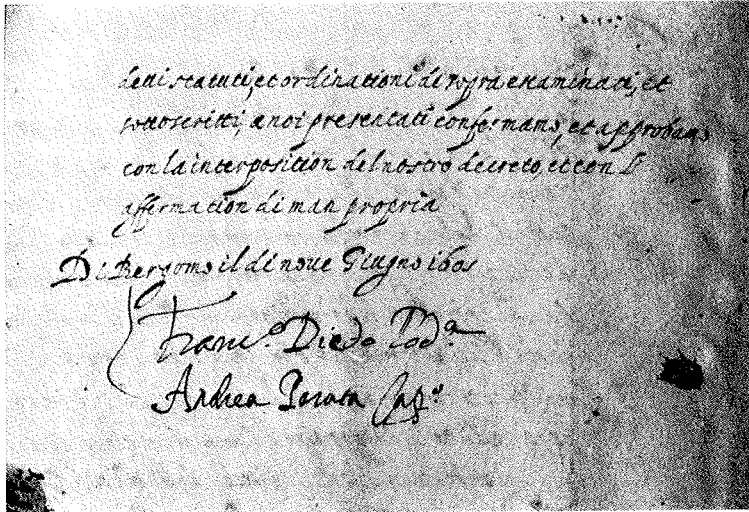 detti statuti, et ordinationi di sopra esaminati, et
sottoscritti, a noi presentati confermamo, et approbamo
con la interposition del nostro decreto, et con l'
affirmation di man propria
Di Bergomo il di noue Giugno 1605
Franc.º Diedo Pod.ª
Andrea Cap.º